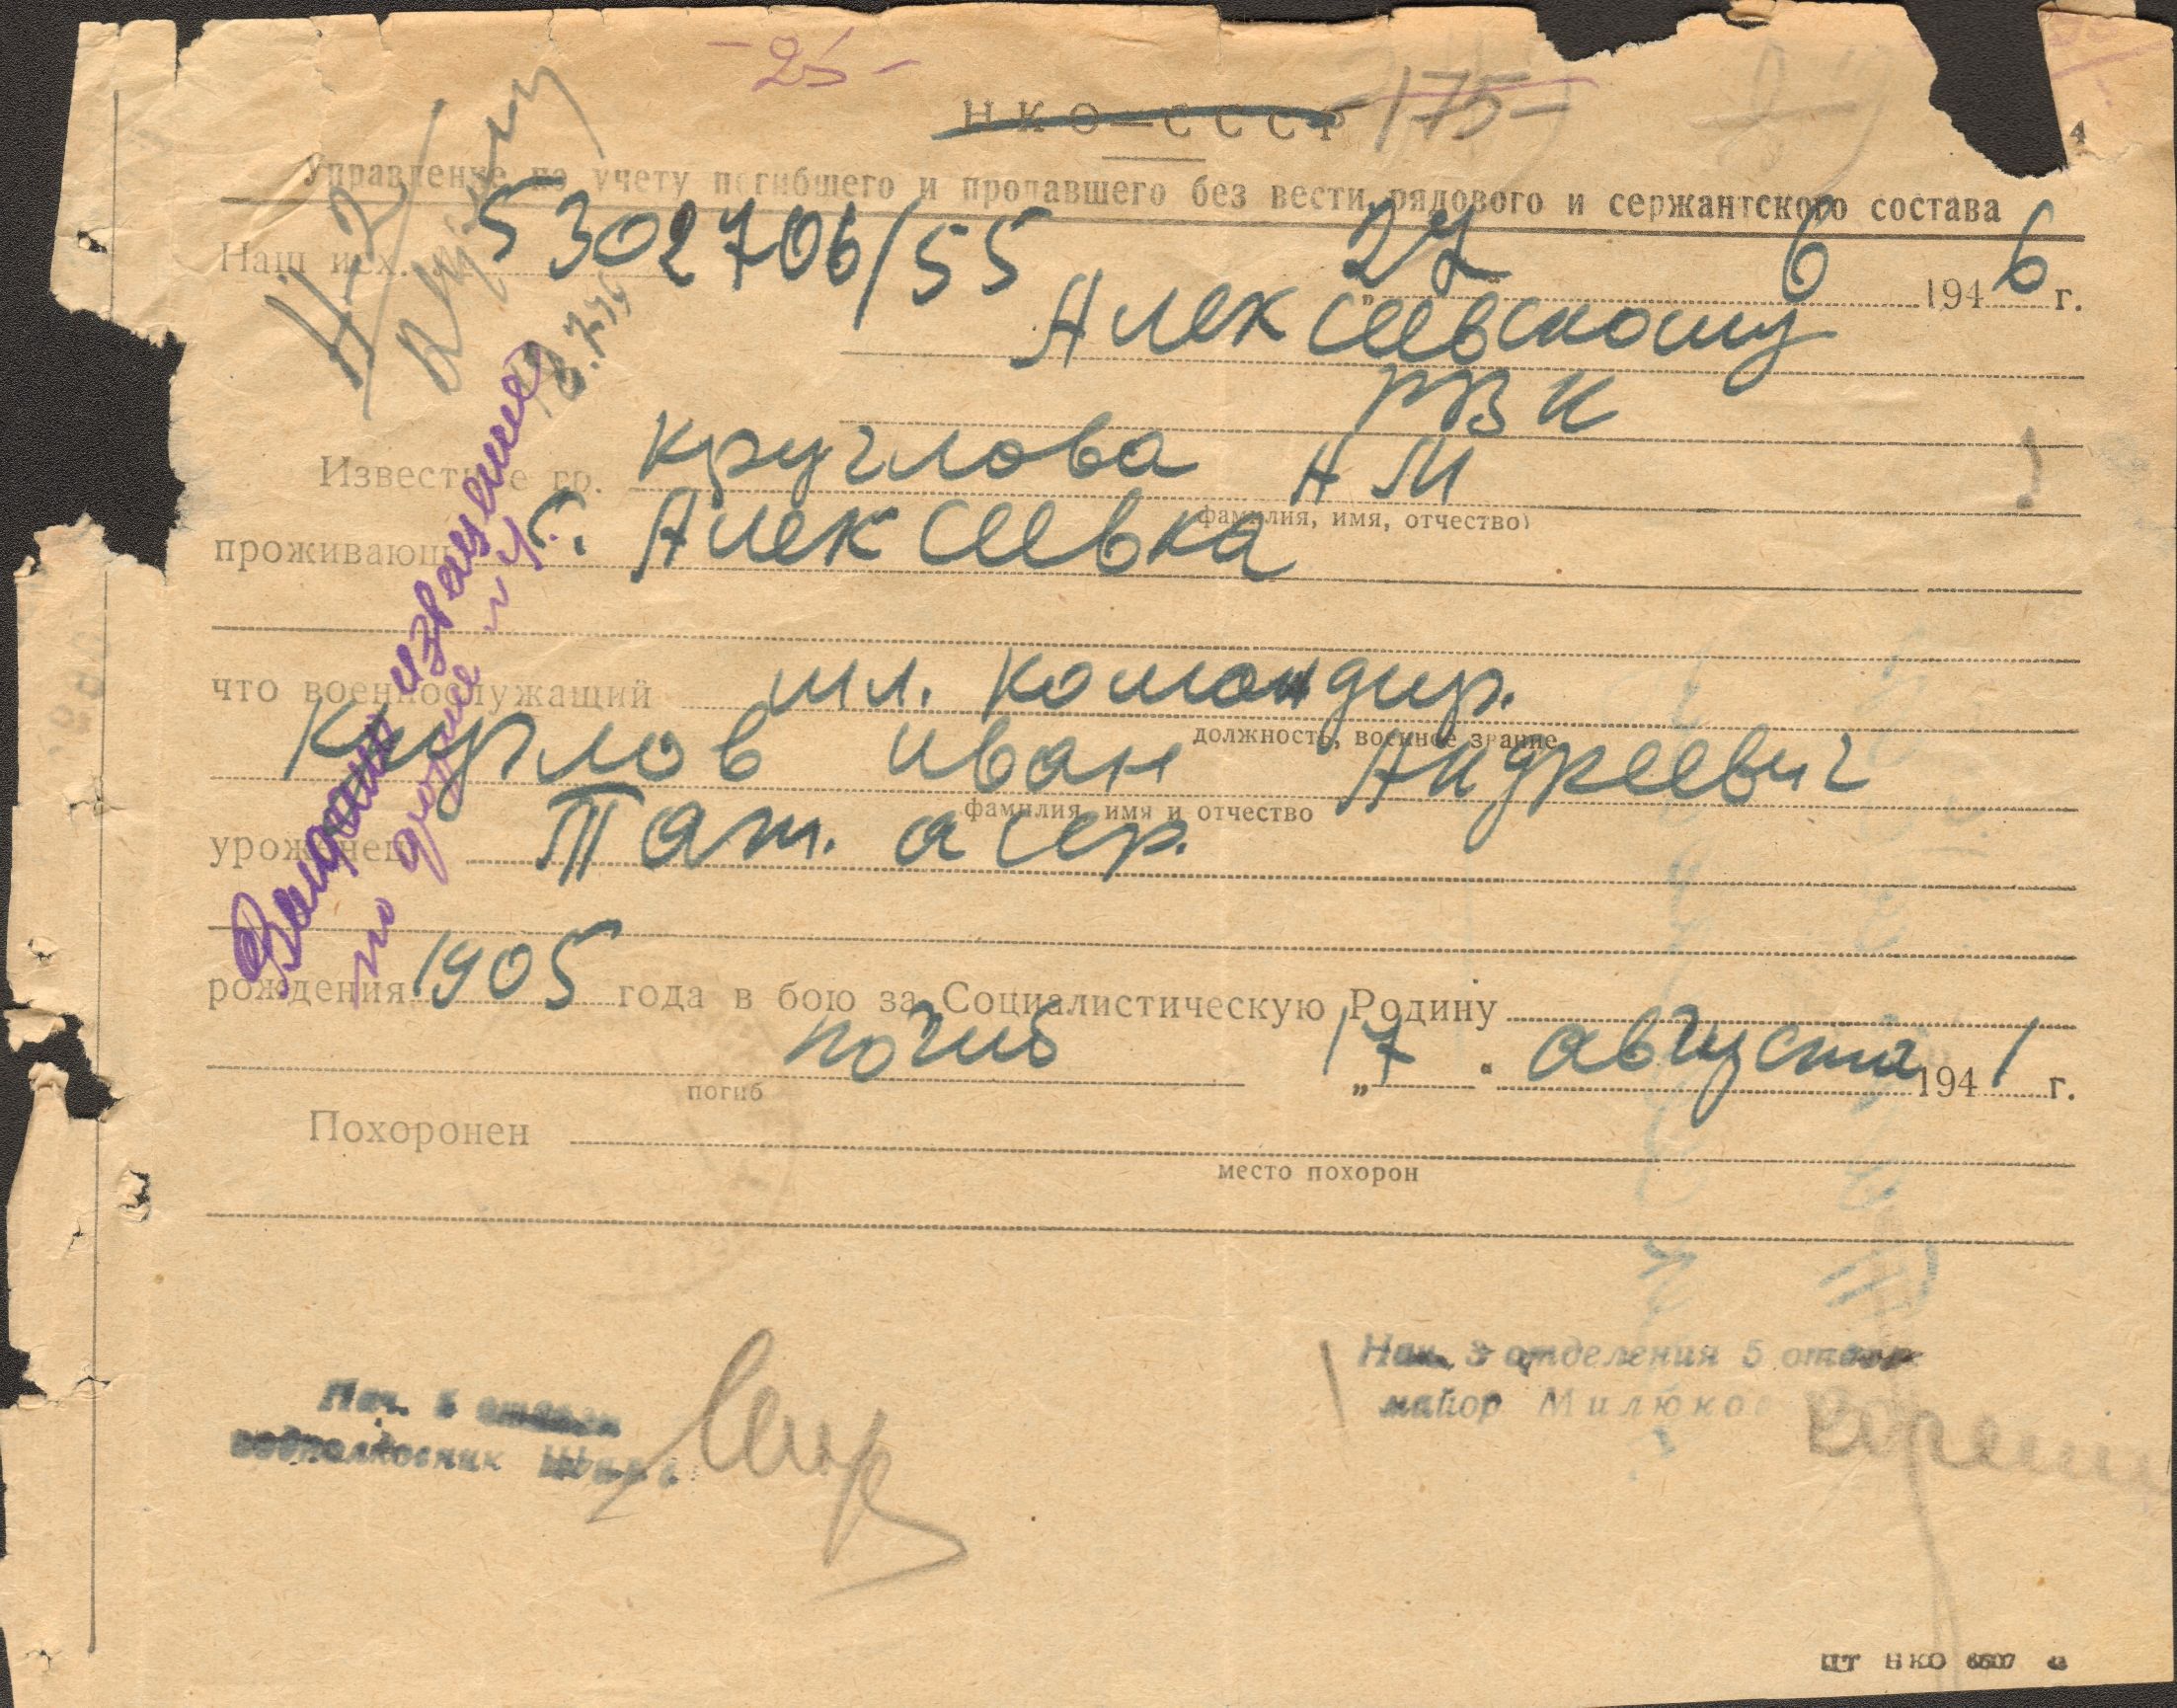 - 25 -
НКО—СССР 175-
Управление по учету погибшего и пропавшего без вести рядового и сержантского состава
Наш исх. 5302706/55 „27" 6 1946 г.
Алексеевскому
РВК
Известие гр. Круглова А М
фамилия, имя, отчество)
проживающ с. Алексеевка
что военнослужащий мл. командир.
должность, военное звание
Круглов Иван Андреевич
фамилия, имя и отчество
уроженец Тат. асср.
рождения 1905 года в бою за Социалистическую Родину
погиб „17" августа 1941 г.
погиб
Похоронен
место похорон
Нач. 3 отделения 5 отдела
майор Милюков
Нач. 5 отдела
подполковник
извещение
ЦТ НКО